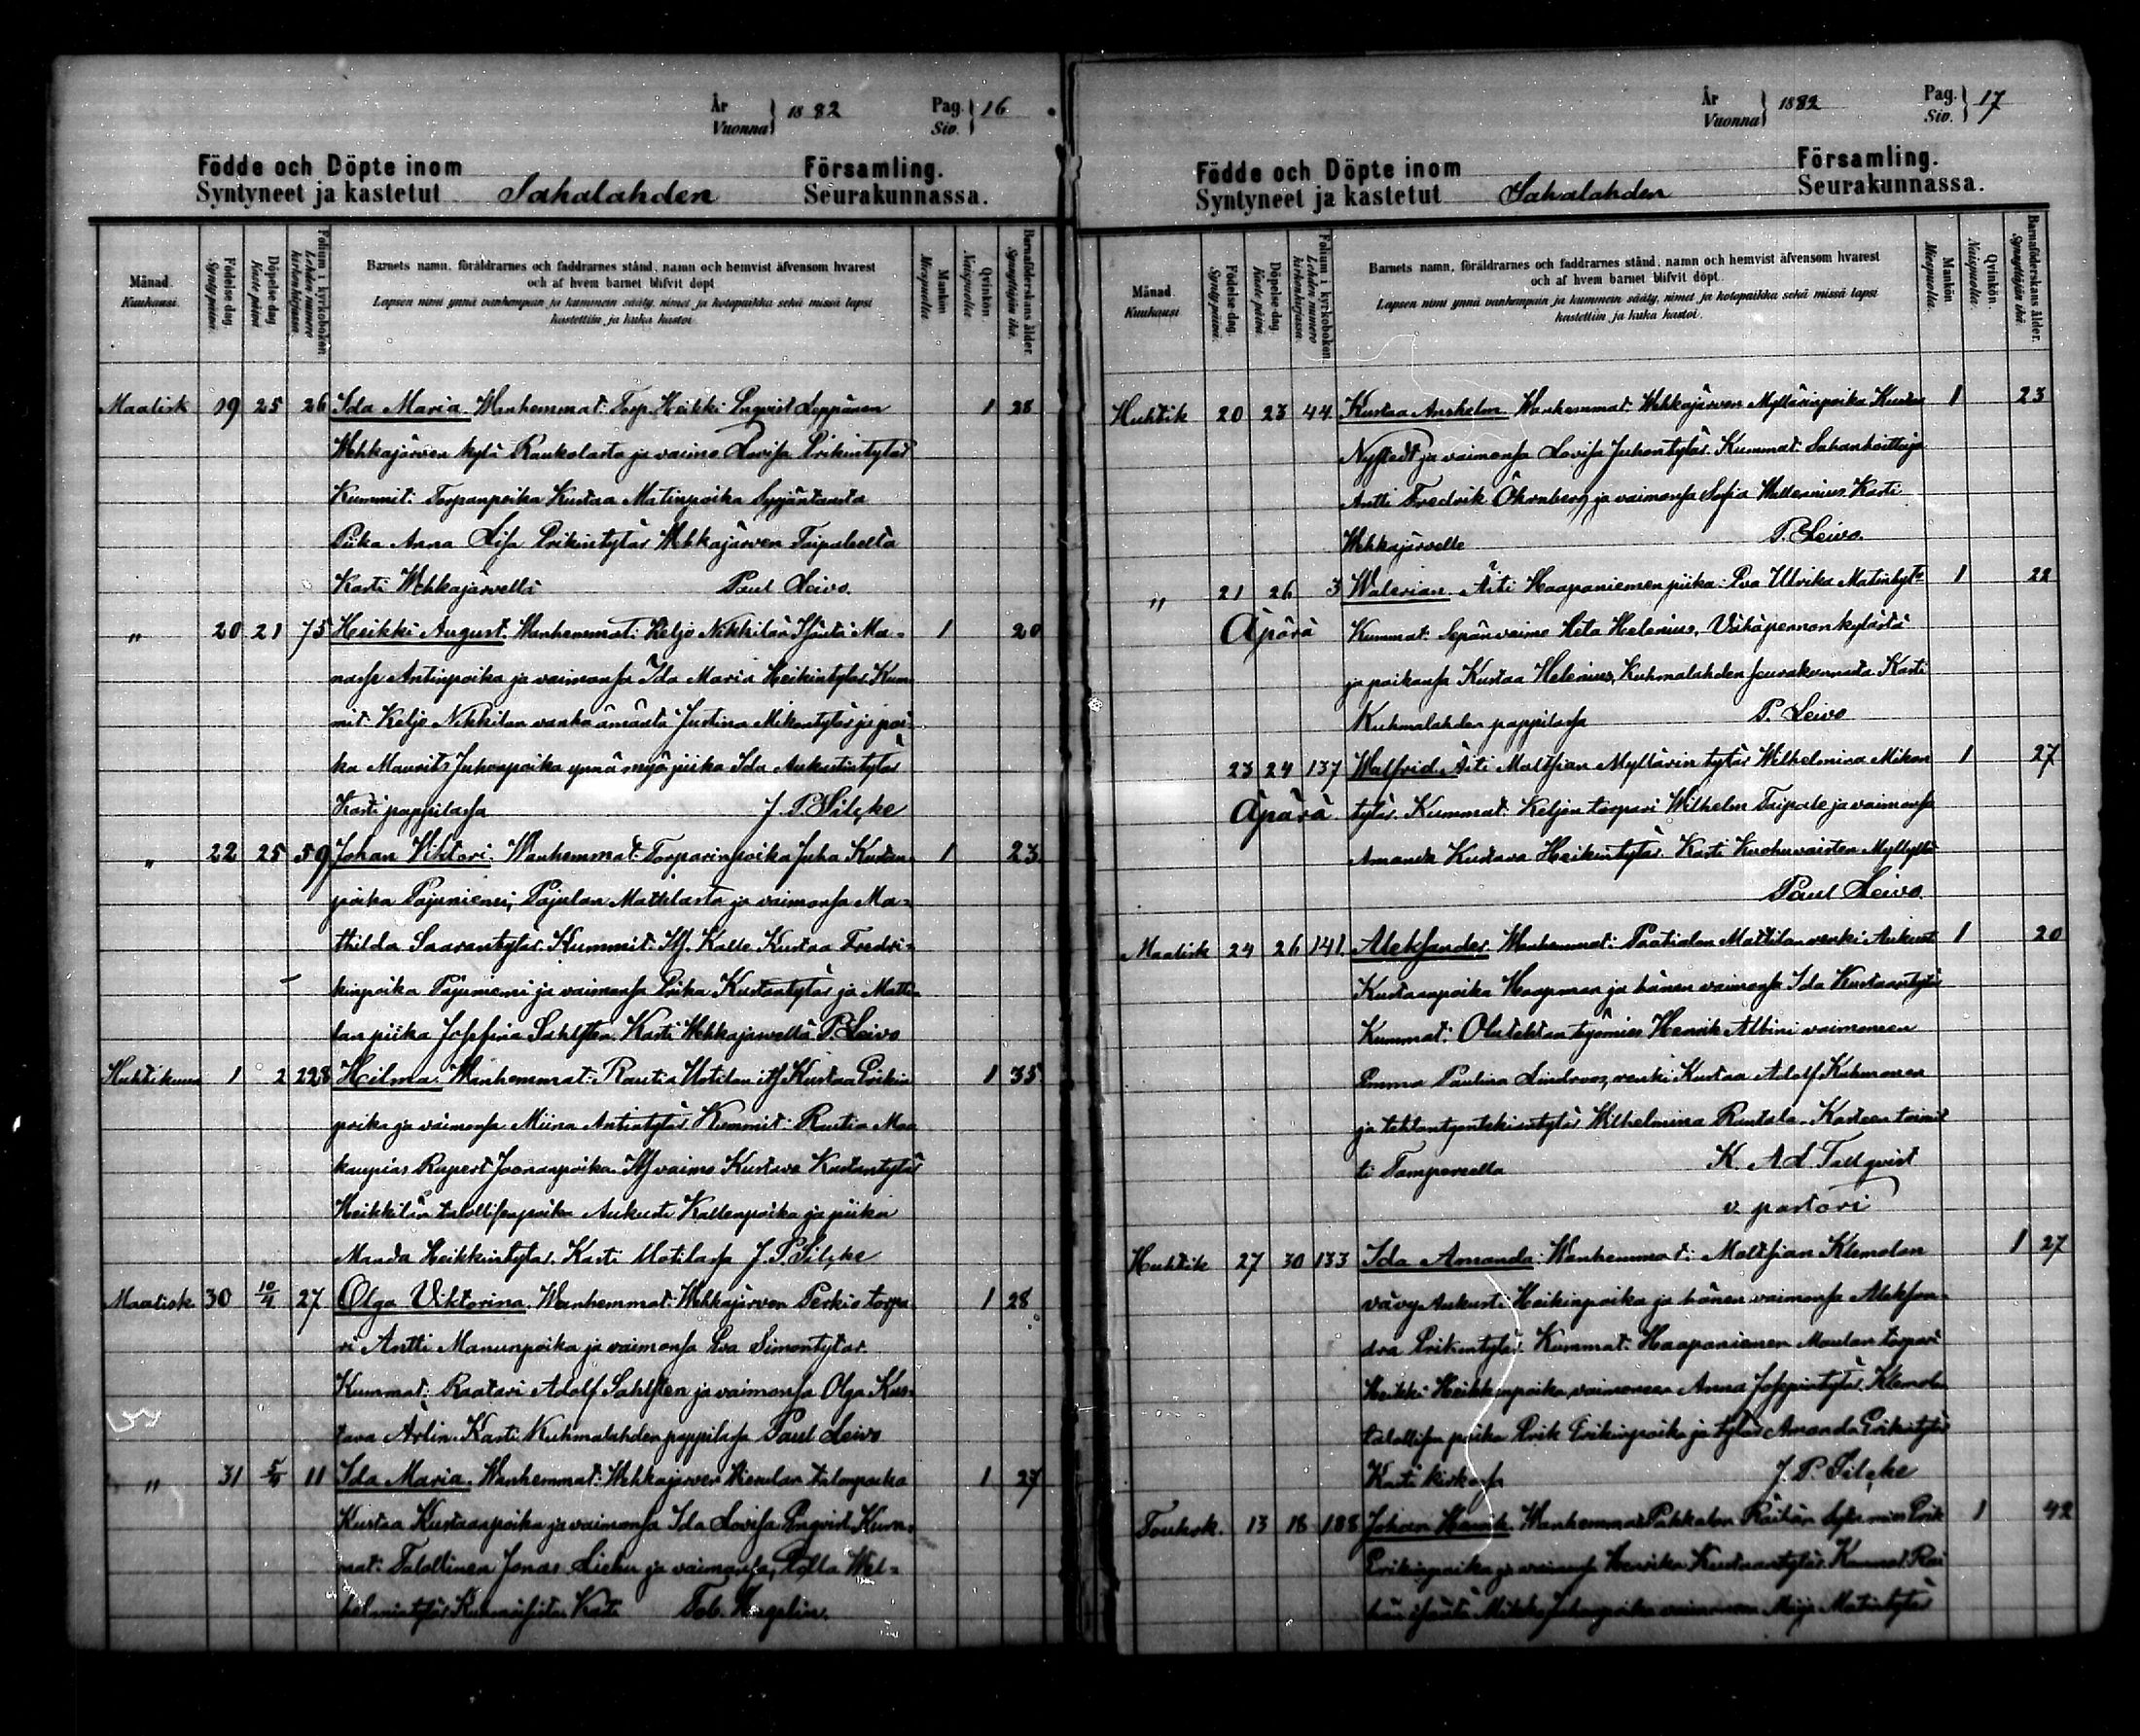 År
Vuonna } 1882
Pag.
Siv. } 16
Födde och Döpte inom Församling.
Syntyneet ja kastetut Sahalahden Seurakunnassa.
Månad. Kuukausi.
Födelse dag. Synty päivä.
Döpelse dag. Kaste päivä.
Folium i kyrkoboken. Lehden numero kirkonkirjassa.
Barnets namn, föräldrarnes och faddrarnes stånd, namn och hemvist äfvensom hvarest
och af hvem barnet blifvit döpt
Lapsen nimi ynnä vanhempain ja kummein sääty, nimet ja kotopaikka sekä missä lapsi
kastettiin ja kuka kastoi
Mankön. Miespuolta.
Qvinkön. Naispuolta.
Barnaföderskans ålder. Synnyttäjän ikä.
Maalisk 19 25 26 Ida Maria. Wanhemmat: Torp. Heikki Enqvist Leppänen 1 28
Wehkajärven kylä Raukolasta ja vaimo Lovisa Erikintytär
Kummit: Torpanpoika Kustaa Matinpoika
Piika Anna Lisa Erikintytär Wehkajärven Taipaleelta
Kasti Wehkajärvellä Paul Leivo.
" 20 21 75 Heikki August. Wanhemmat: Keljo Nikkilän Isäntä Ma- 1 20
nasse Antinpoika ja vaimonsa Ida Maria Heikintytär Kum
mit: Keljo Nikkilän vanha emäntä Justina Mikontytär ja poi
ka Maurits Juhonpoika ynnä myös piika Ida Aukustintytär
Kasti pappilassa J. P. Silcke
" 22 25 59 Johan Viktori. Wanhemmat: Torparinpoika Juha Kustan- 1 23
poika Pajuniemi, Pajulan Mattilasta ja vaimonsa Ma-
thilda Saarantytär. Kummit: Its. Kalle Kustaa Fredri-
kinpoika Pajuniemi ja vaimonsa Erika Kustantytär ja Matti-
lan piika Josefina Sahlsten. Kasti Wehkajärvellä P. Leivo
Huhtikuun 1 2 228 Hilma. Wanhemmat: Rautia Uotilan its Kustaa Erikin 1 35
poika ja vaimonsa Miina Antintytär. Kummit: Rautia Maa
kaupias Rupert Joonanpoika. Its vaimo Kustava Kustantytär
Heikkilän talollisenpoika Aukusti Kallenpoika ja piika
Manda Heikkintytär. Kasti Uotilassa J. P. Silcke
Maalisk 30 10/4 27 Olga Viktorina. Wanhemmat: Wehkajärven Perkio torpa- 1 28
ri Antti Manunpoika ja vaimonsa Eva Simontytär.
Kummat: Raatari Adolf Sahlsten ja vaimonsa Olga Kus-
tava Arlin. Kasti Kuhmalahden pappilassa Paul Leivo
" 31 5/4 11 Ida Maria. Wanhemmat: Wehkajärven talonpoika 1 27
Kustaa Kustaanpoika ja vaimonsa Ida Lovisa Enqvist. Kum-
mat: Talollinen Jonas Liehu ja vaimonsa, Wil-
helmintytär Kasti Tob.
År
Vuonna } 1882
Pag.
Siv. } 17
Födde och Döpte inom Församling.
Syntyneet ja kastetut Sahalahden Seurakunnassa.
Månad. Kuukausi
Födelse-dag. Synty päivä.
Döpelse-dag. Kaste päivä.
Folium i kyrkoboken. Lehden numero kirkonkirjassa.
Barnets namn, föräldrarnes och faddrarnes stånd, namn och hemvist äfvensom hvarest
och af hvem barnet blifvit döpt.
Lapsen nimi ynnä vanhempain ja kummein sääty, nimet ja kotopaikka sekä missä lapsi
kastettiin ja kuka kastoi.
Mankön. Miespuolta.
Qvinkön. Naispuolta.
Barnaföderskans ålder. Synnyttäjän ikä.
Huhtik 20 23 44 Kustaa Anshelm. Wanhemmat: Wehkajärven Myllärinpoika Kustaa 1 23
Nystedt ja vaimonsa Lovisa Juhontytär. Kummat: Sahanhoittaja
Antti Fredrik Öhrnberg ja vaimonsa Sofia Wallenius. Kasti
Wehkajärvelle P. Leivo.
" 21 26 3 Walerian. Äiti Haapaniemen piika: Eva Ulrika Matintytr 1 22
Äpärä Kummat: Sepänvaimo Heta Helenius, Wähäpennonkylästä
ja poikansa Kustaa Helenius, Kuhmalahden seurakunnasta Kasti
Kuhmalahden pappilassa P. Leivo
23 24 137 Walfrid. Äiti Maltsian Myllärin tytär Wilhelmina Mikon 1 27
Äpärä tytär. Kummat: Keljon torpari Wilhelm Taipale ja vaimonsa
Amanda Kustava Heikintytär. Kasti Kuohuvaisten Myllyllä
Paul Leivo
Maalisk 24 26 141 Aleksander. Wanhemmat: Paatialan Mattilan renki Aukusti 1 20
Kustaanpoika Haapman ja hänen vaimonsa Ida Kustaantytär
Kummat: Olutehtaan työmies Henrik Albin vaimoneen
Emma Paulina Lindroos, renki Kustaa Adolf Kuhmonen
ja tehtantyöntekiantytär Wilhelmina Rantala. Kasteen toimit
ti Tampereella K. A. L. Tallqvist
v. pastori
Huhtik 27 30 133 Ida Amanda. Wanhemmat: Maltsian Klemolan 1 27
vävy Aukusti Heikinpoika ja hänen vaimonsa Aleksan-
dra Erikintytär. Kummat: Haapaniemen Maulan torpari
Heikki Heikkinpoika, vaimoneen Anna Josefintytär, Klemolan
talollisen poika Erik Erikinpoika ja tytär Amanda Erikintytär
Kasti kirkossa J. P. Silcke
Toukok. 13 18 188 Johan Henrik. Wanhemmat Pakkalan Räihän mies Erik 1 42
Erikinpoika ja vaimonsa Henrika Kustaantytär. Kummat: Räi
hän isäntä Mikko Juhonpoika vaimoneen Maija Matintytär